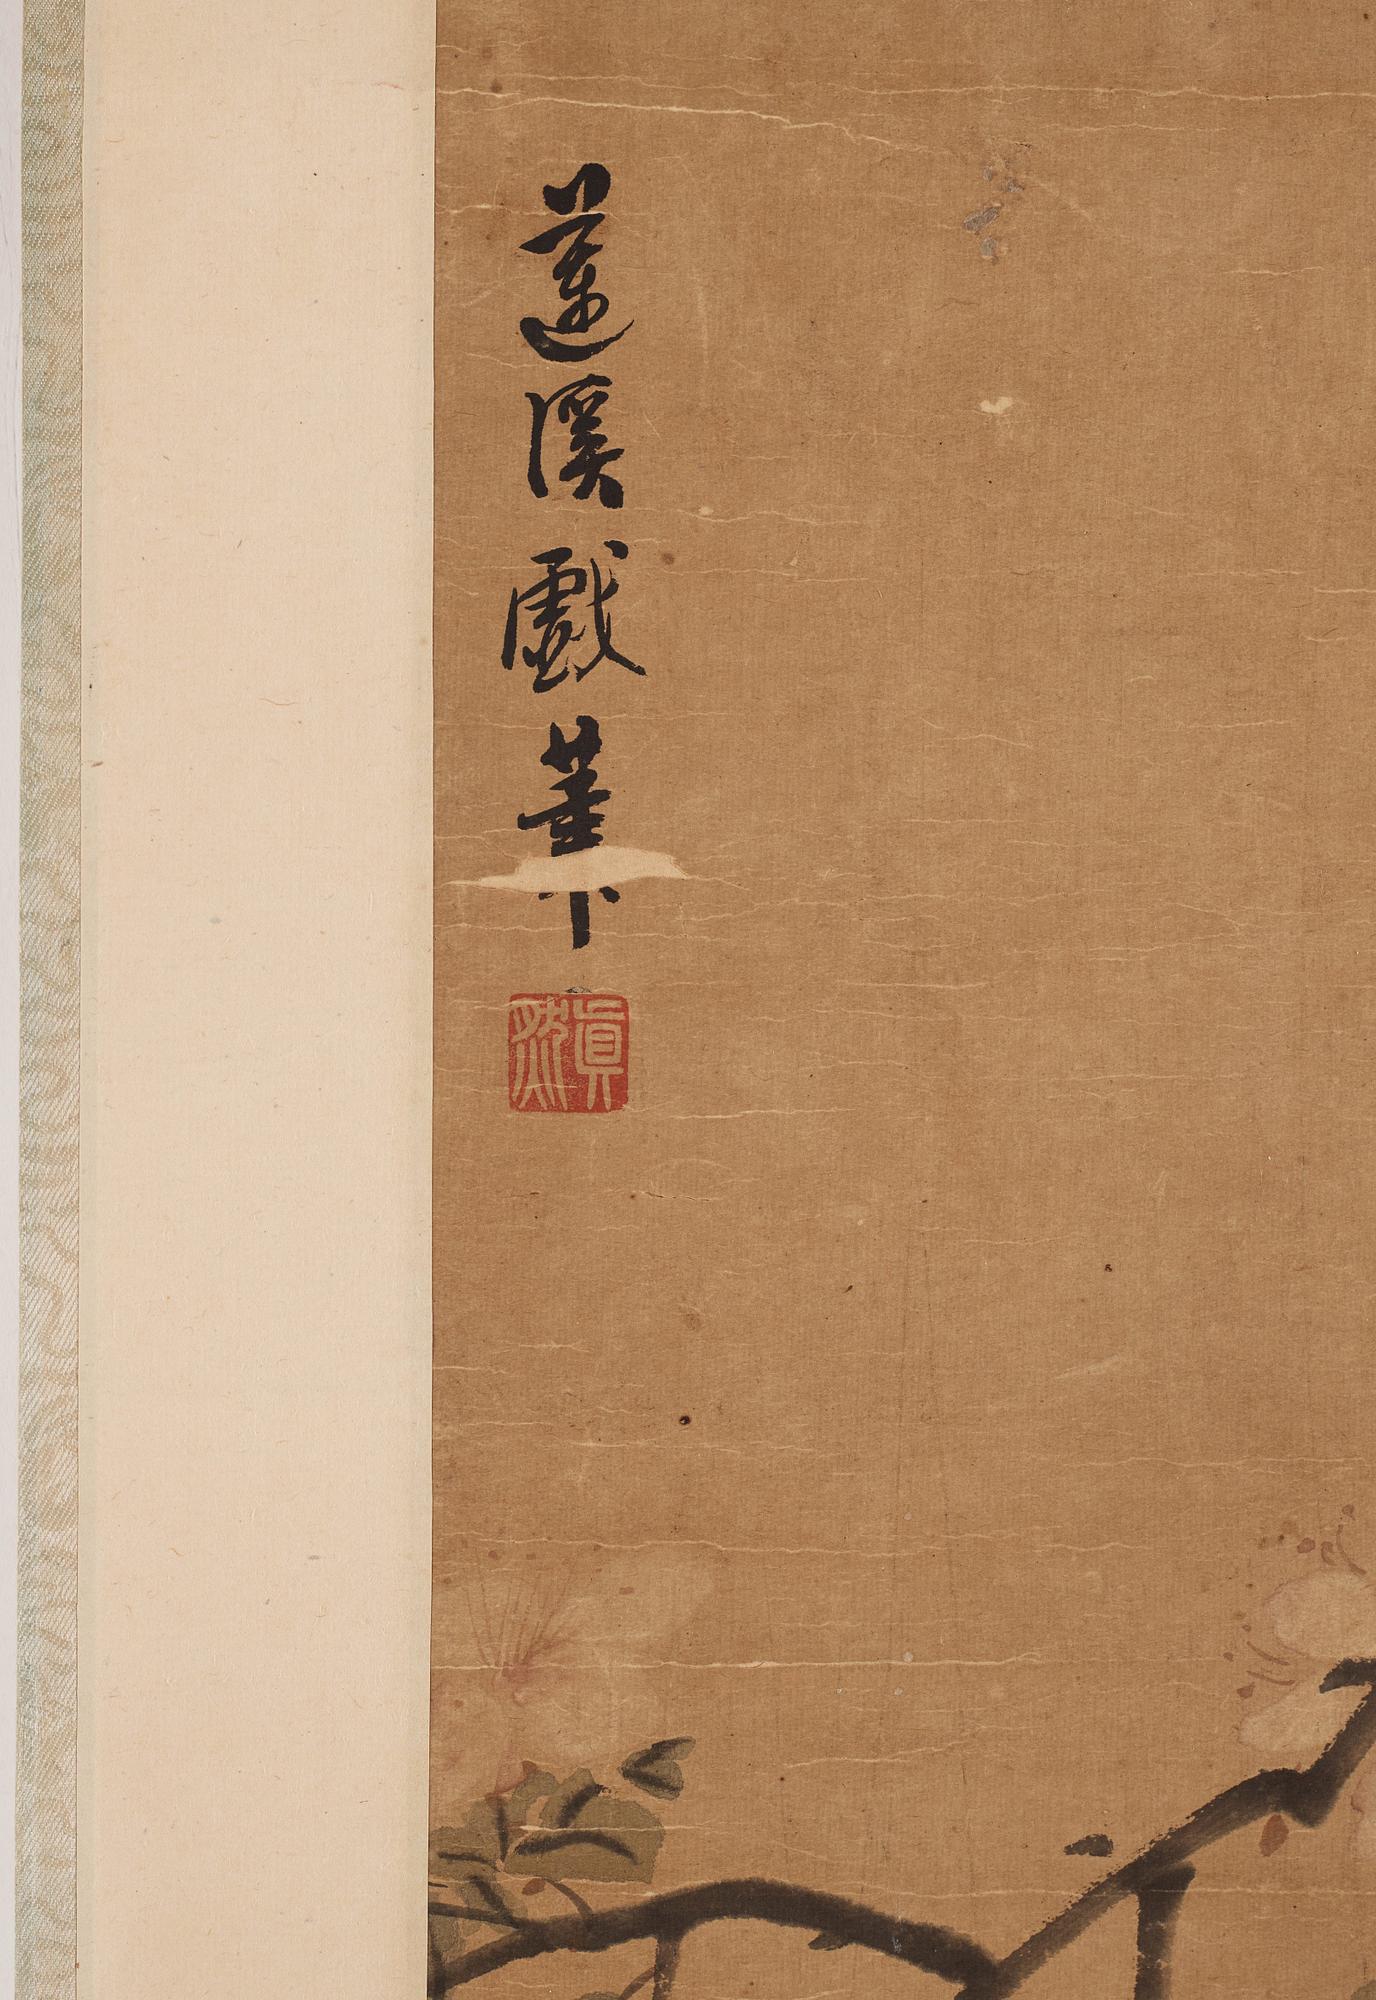 蓮溪戲筆
真然